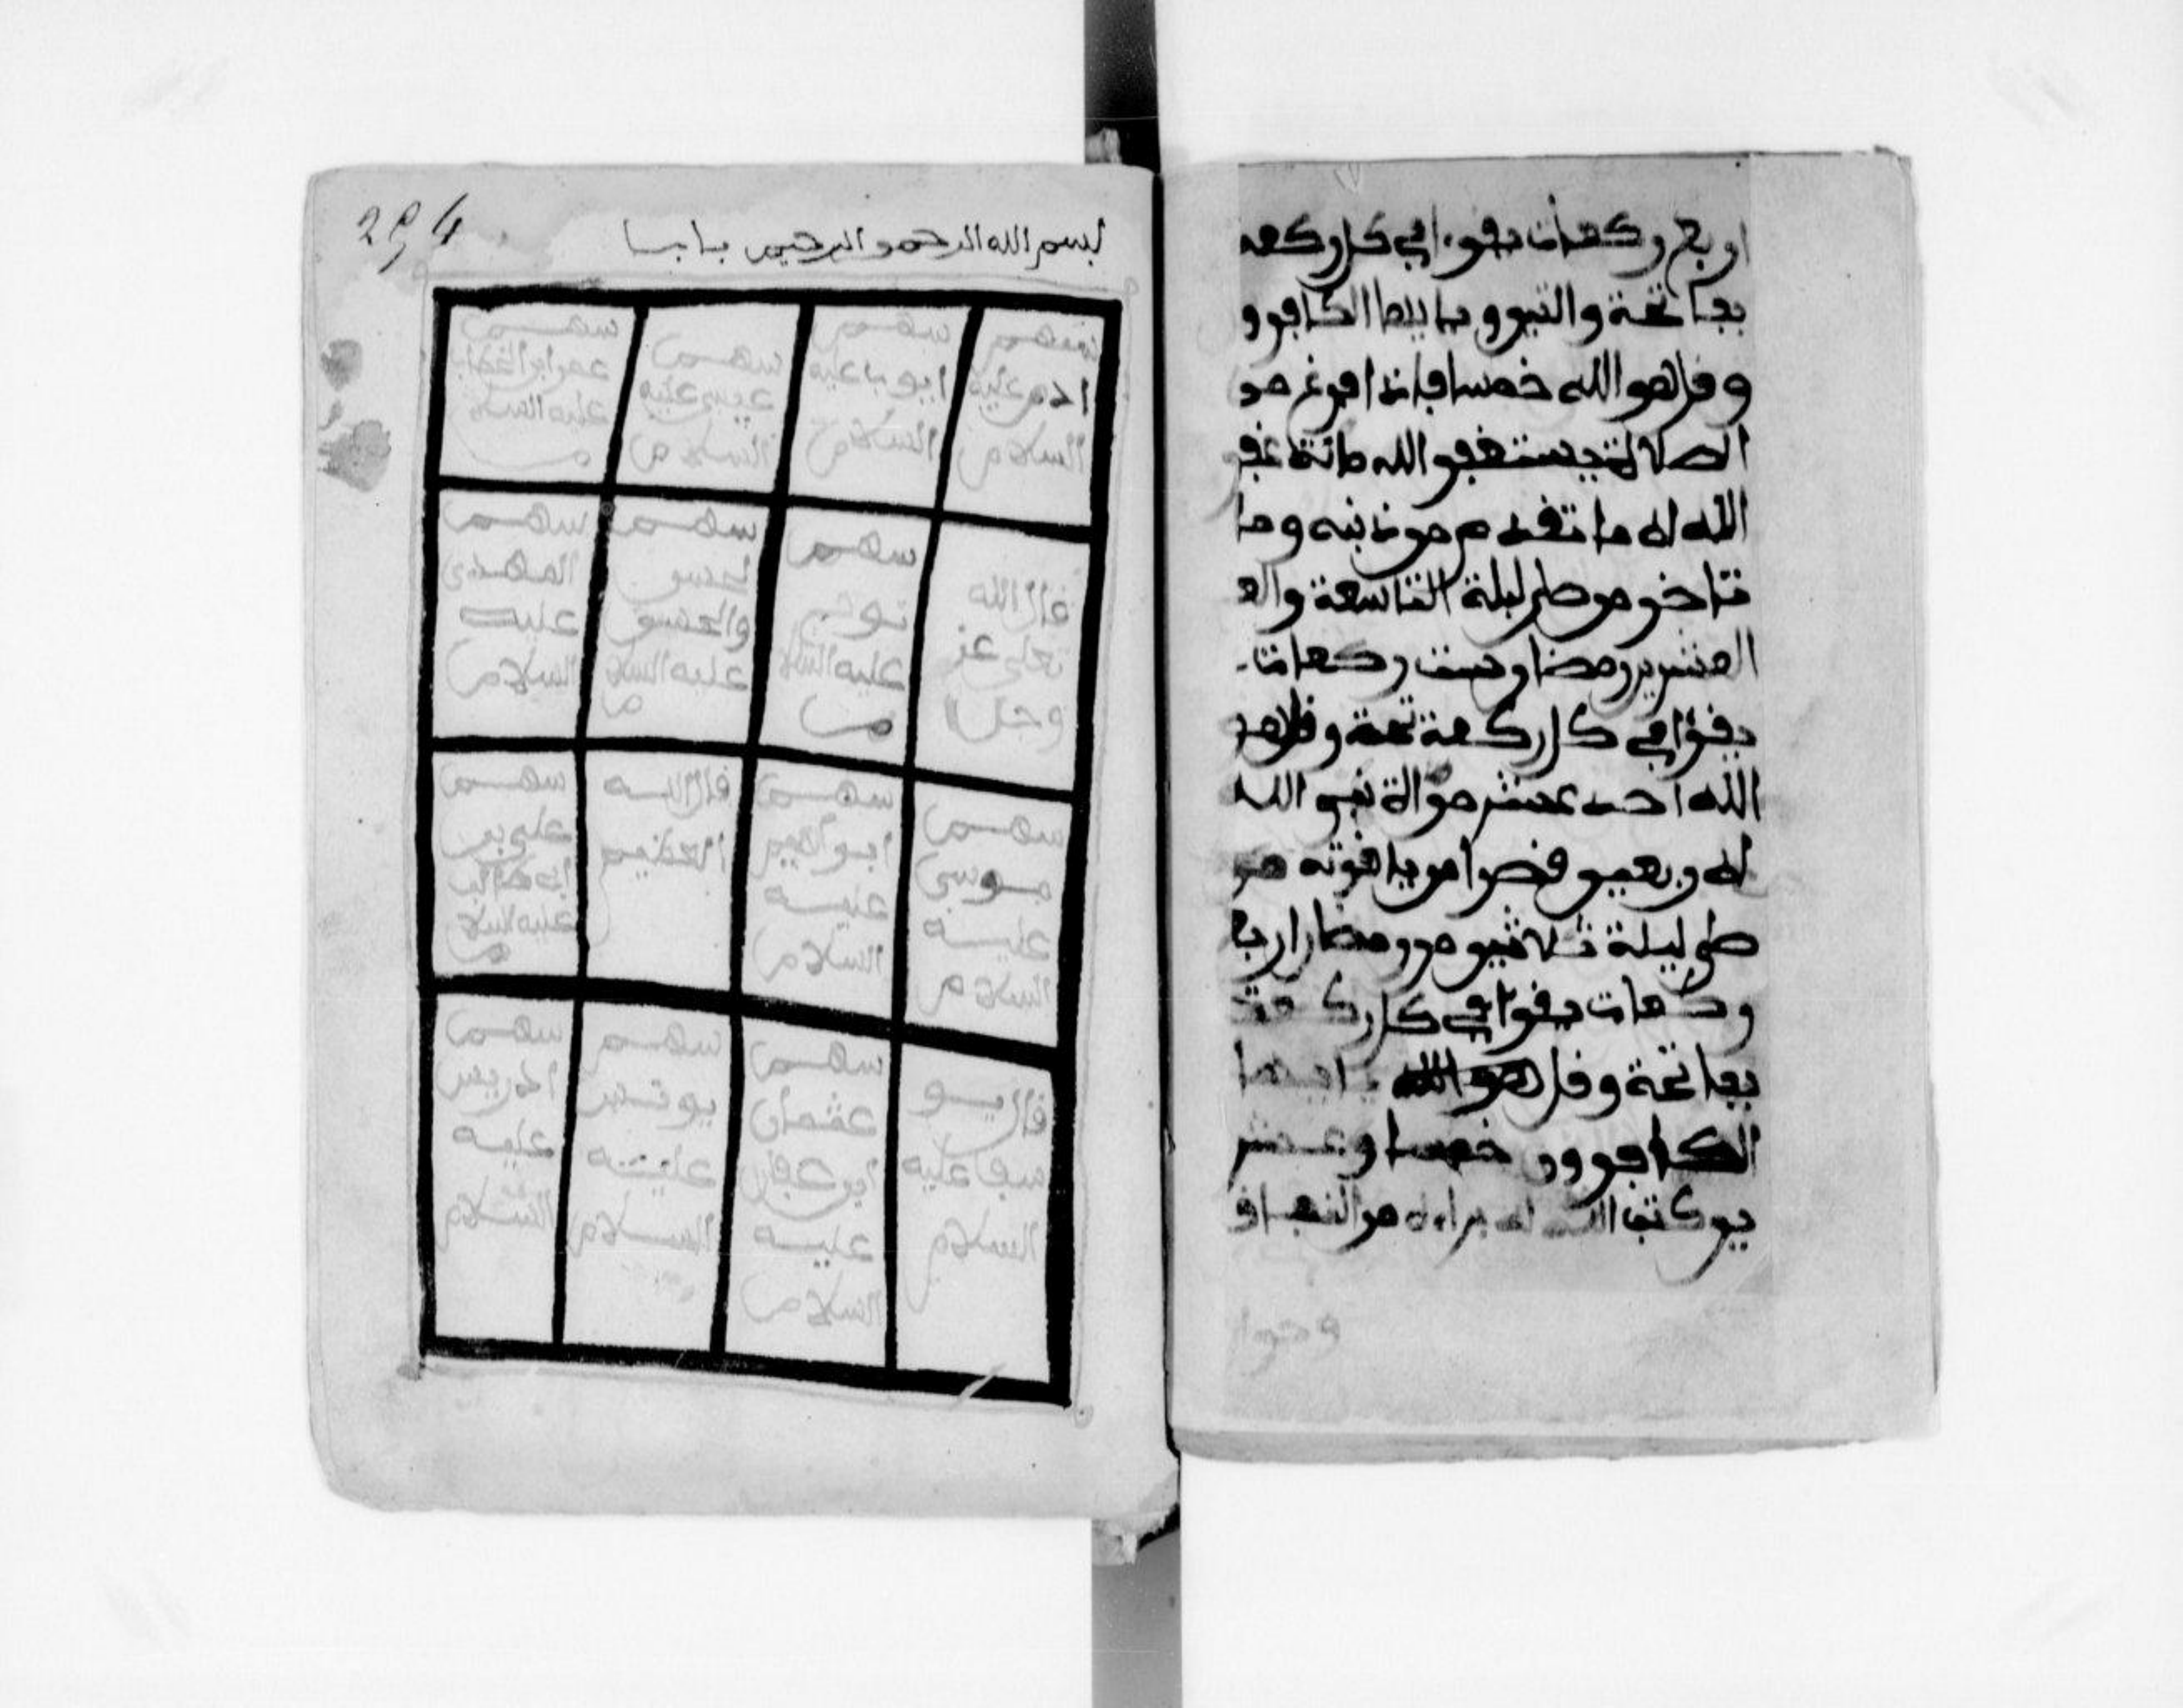 اربع ركعات يقرء في كل ركعة
بفاتحة والتين و يايها الكافرو
و قل هو الله خمسا فاذا فرغ من
الصلاة يستغفر الله مائة غفر
الله له ما تقدم من ذنبه وما
تاخر من صلى ليلة التاسعة والع
العشرين رمضان ست ركعات
يقرا في كل ركعة تحة و قل هو
الله احد عشر مرالة نبي الله
له اربعين قصرا من ياقوتة من
صلى ليلة ثلاثين من رمضان اربا
ركعات يقرا في كل ركعة
بفاتحة و قل هو الله يايها
الكافرون خمسا وعشر
ين كتب الله له براءة من النفاق
294
بسم الله الرحمن الرحيم باب
سهم
ادم عليه
السلام
سهم
ايوب عليه
السلام
سهم
عيسى عليه
السلام
سهم
عمر ابن الخطاب
عليه السلا
م
قال الله
تعلى عز
وجل
سهم
نوح
عليه السلا
م
سهم
لحسن
والحسين
عليه السلا
م
سهم
المهدي
عليه
السلام
سهم
موسى
عليه
السلام
سهم
ابراهيم
عليه
السلام
قال الله
العظيم
سهم
علي بن
ابي طالب
عليه السلا
م
قال يو
سف عليه
السلام
سهم
عثمان
ابن عفان
عليه
السلام
سهم
يونس
عليه
السلام
سهم
ادريس
عليه
السلام